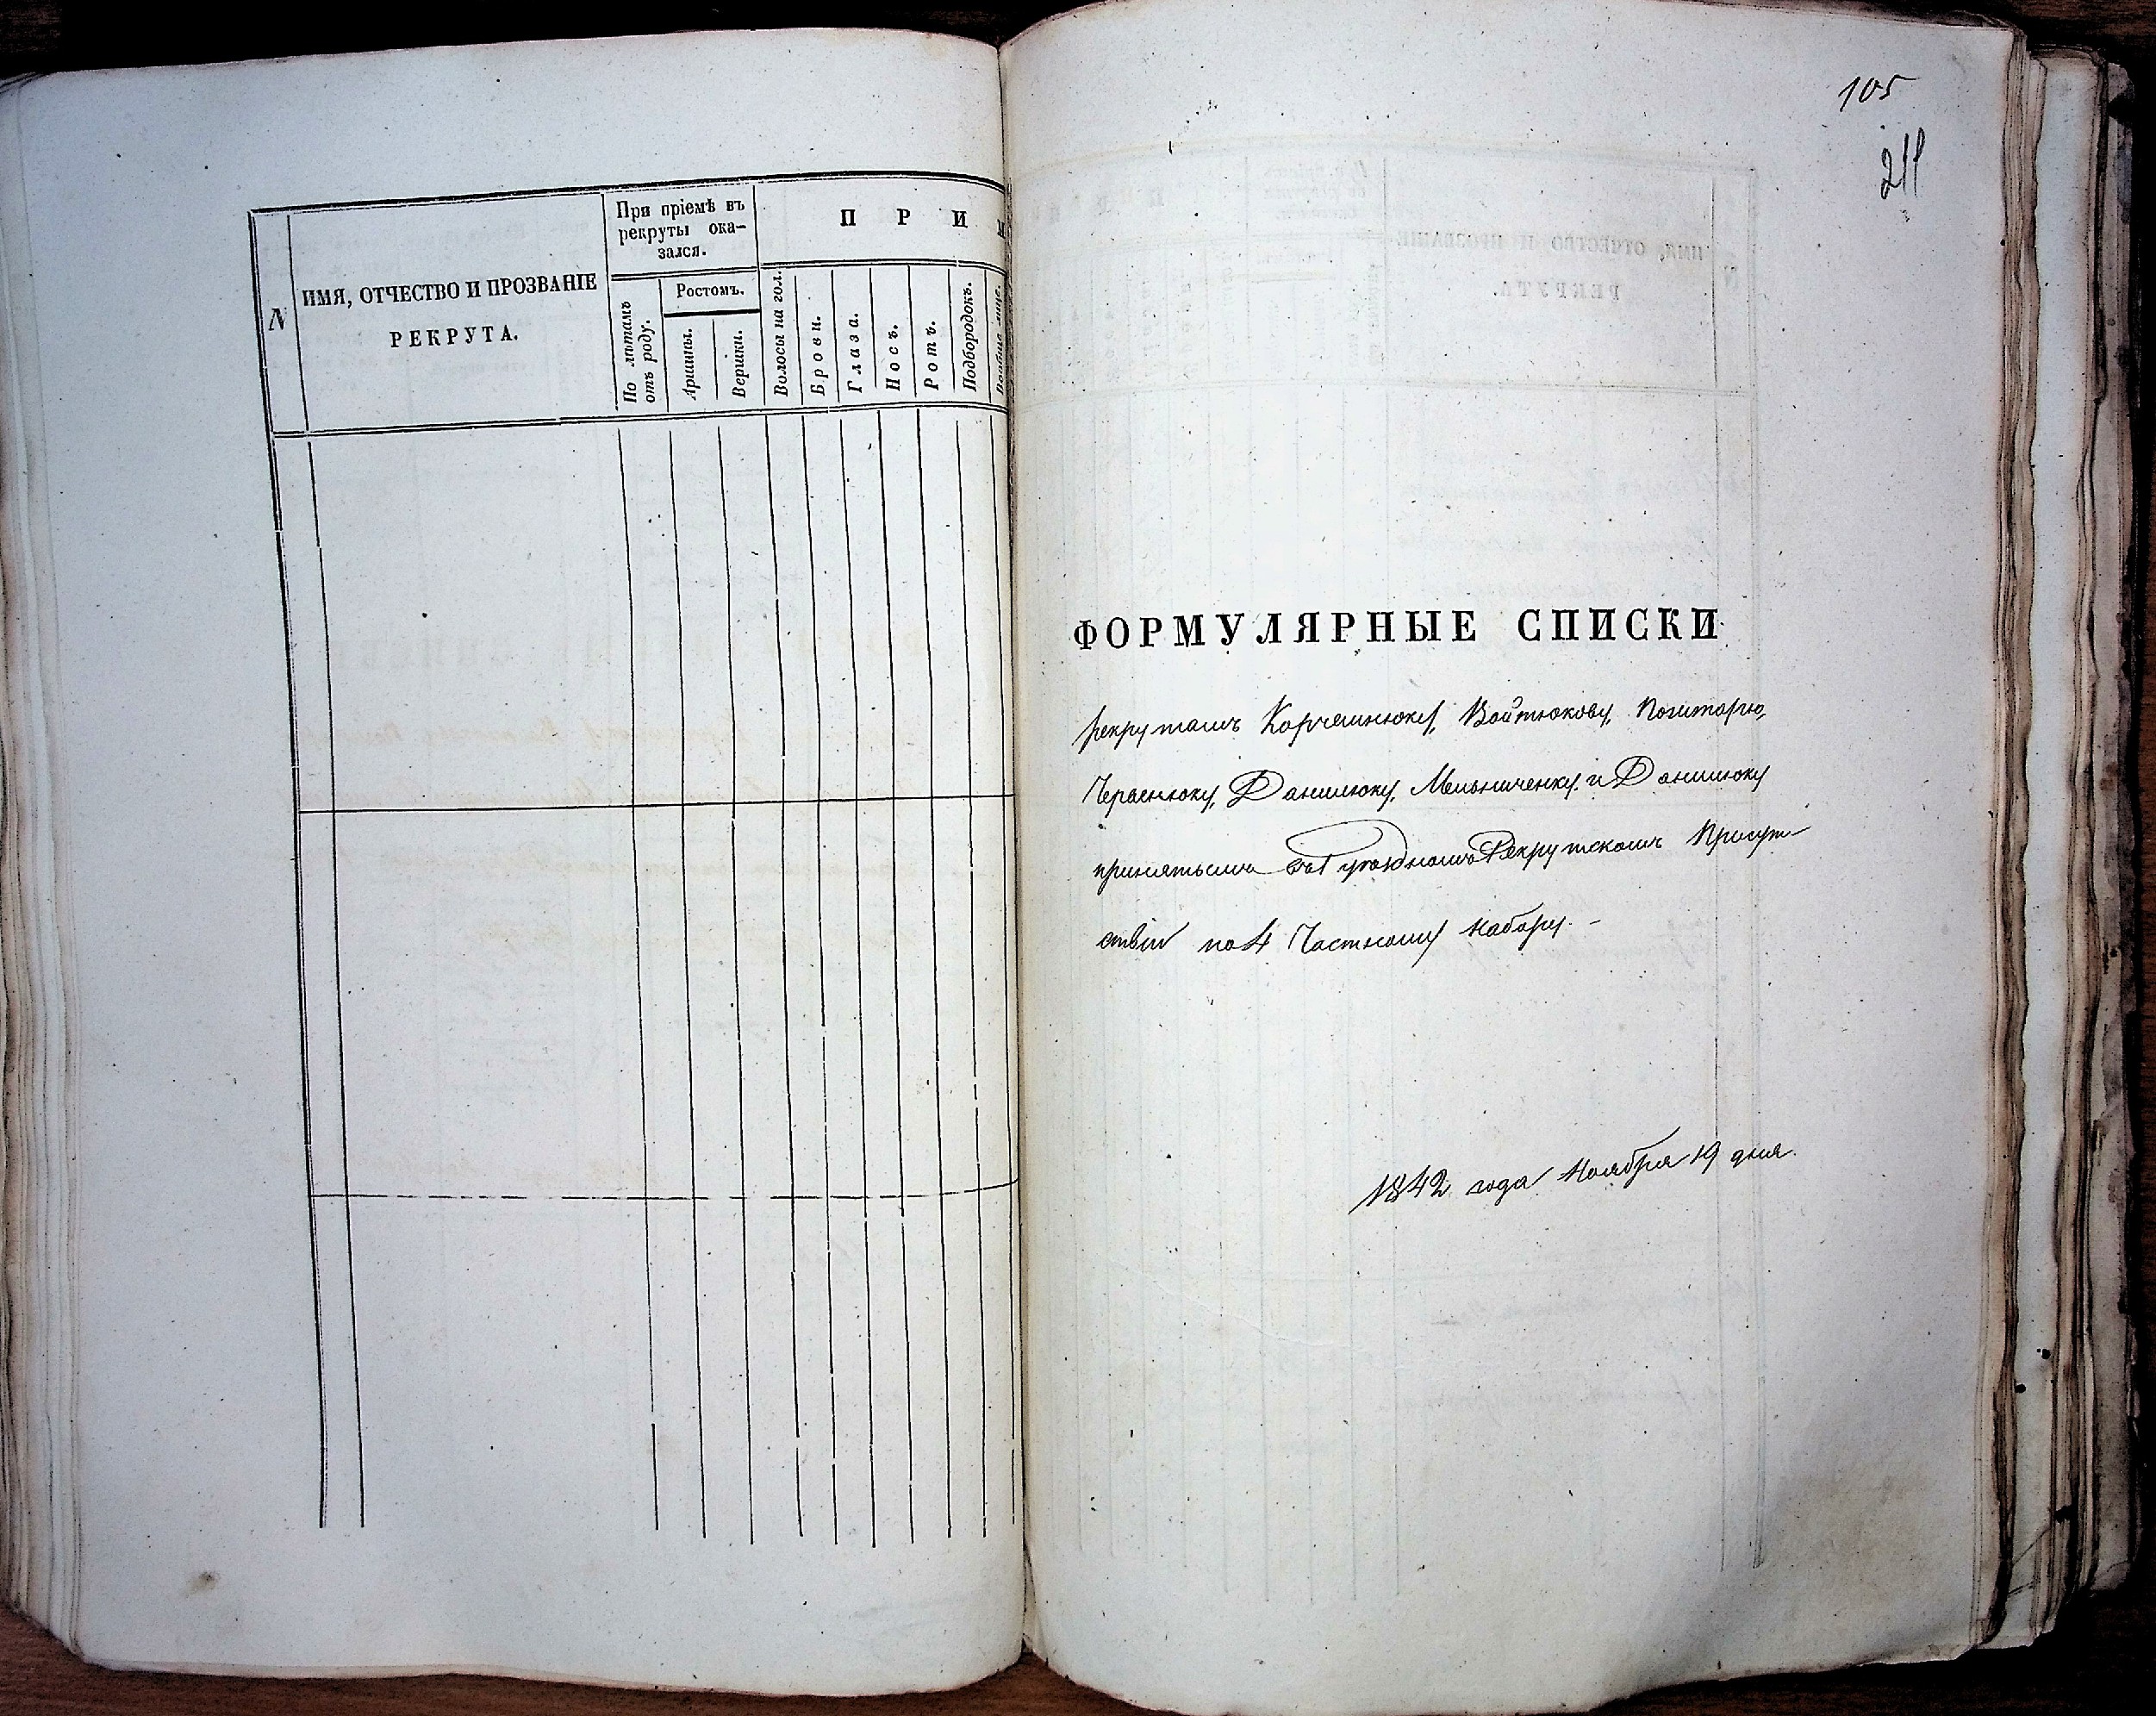 N
ИМЯ, ОТЧЕСТВО И ПРОЗВАНІЕ
РЕКРУТА.
При пріемѣ въ
рекруты ока-
зался.
По лѣтамъ
отъ роду.
Ростомъ.
Аршины.
Вершки.
П Р И М
Волосы на гол.
Брови.
Глаза.
Носъ.
Ротъ.
Подбородокъ.
Вообще лице.
105
211
ФОРМУЛЯРНЫЕ СПИСКИ
рекрутамъ Корчеминюку, Войтюкову,
Данилюку, Мельниченку и Данилюку
принятымъ въ Уѣздномъ Рекрутскомъ Присут-
ствіи по 4 Частному набору. –
1842 года Ноября 19 дня.